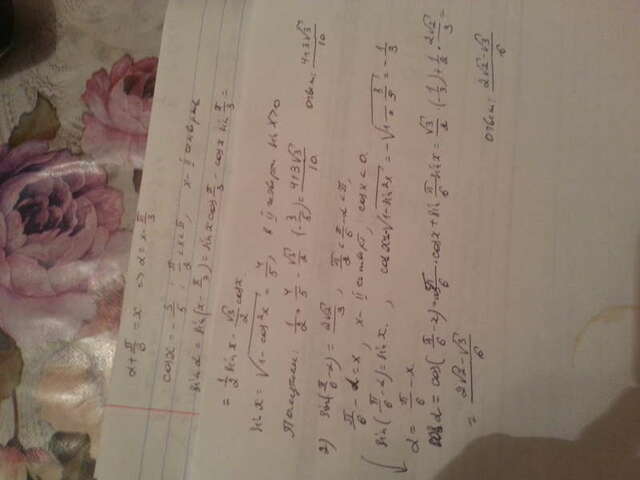 α + π/6 = x => α = x - π/3
cos x = -3/5; π/2 < x < π, x - II четверти
sin α = sin(x - π/3) = sin x cos π/3 - cos x sin π/3 =
= 1/2 sin x - √3/2 cos x
sin x = √(1 - cos²x) = 4/5, в II четверти sin x > 0
Получили: 1/2 · 4/5 - √3/2 · (-3/5) = (4+3√3)/10
ответ: (4+3√3)/10
2) sin(π/6 - α) = 2√2/3, π/2 < π/6 - α < π,
π/6 - α = x, x - II четверт., cos x < 0.
sin(π/6 - α) = sin x, cos x = -√(1 - sin²x) = -√(1 - 8/9) = -1/3
α = π/6 - x
cos α = cos(π/6 - x) = cos π/6 · cos x + sin π/6 sin x = √3/2 · (-1/3) + 1/2 · 2√2/3 =
= (2√2 - √3)/6
ответ: (2√2 - √3)/6